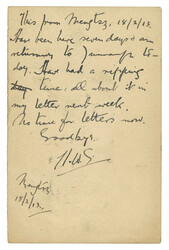 This from Mengtsz, 18/2/13.
Have been here seven days & am
returning to to-
day. Have had a ripping
time; all about it in
my letter next week.
No time for letters now.
Goodbye.
Mengtsz
18/2/13.